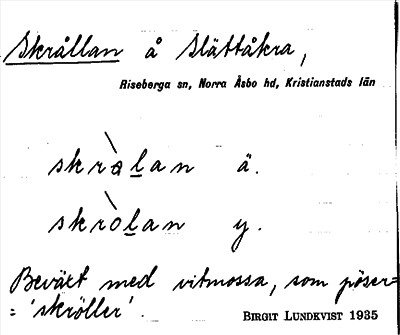 Skrållan å Slättåkra,
Riseberga sn, Norra Åsbo hd, Kristianstads län
skràlan ä.
skròlan y.
Beväxt med vitmossa, som pöser=
= 'skröller'.
BIRGIT LUNDKVIST 1935